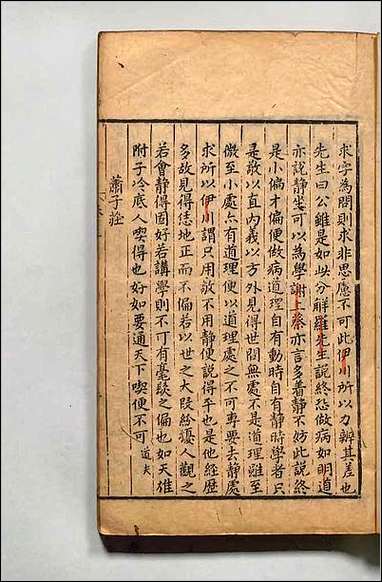 求字為問則求非思慮不可此伊川所以力辨其差也
先生曰公雖是如此分解羅先生說終恐做病如明道
亦說靜坐可以為學謝上蔡亦言多着靜不妨此說終
是小偏才偏便做病道理自有動時自有靜時學者只
是敬以直內義以方外見得世間無處不是道理雖至
微至小處亦有道理便以道理處之不可專要去靜處
求所以伊川謂只用敬不用靜便說得平也是他經歷
多故見得恁地正而不偏若以世之大段紛擾人觀之
若會靜得固好若講學則不可有毫髮之偏也如天雄
附子冷底人喫得也好如要通天下喫便不可 道夫
蕭子莊